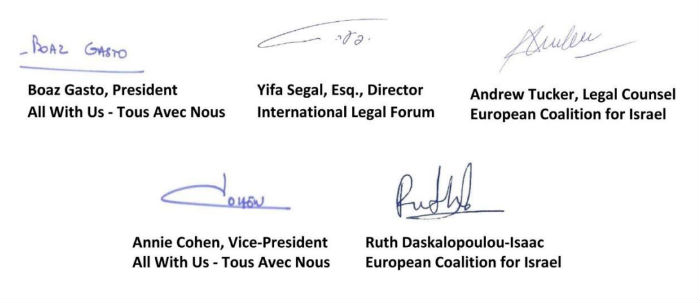 BOAZ GASTO
Boaz Gasto, President
All With Us - Tous Avec Nous
Yifa Segal, Esq., Director
International Legal Forum
Andrew Tucker, Legal Counsel
European Coalition for Israel
COHEN
Annie Cohen, Vice-President
All With Us - Tous Avec Nous
Ruth Daskalopoulou-Isaac
European Coalition for Israel